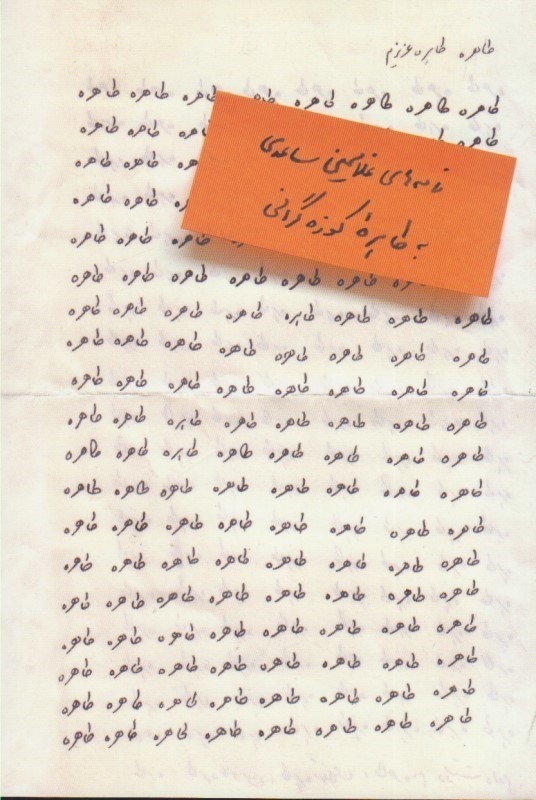 طاهره طاهره عزیزم
طاهره طاهره طاهره طاهره طاهره طاهره طاهره طاهره
طاهره طاهره طاهره
طاهره طاهره
طاهره طاهره
طاهره طاهره طاهره
طاهره طاهره طاهره طاهره طاهره طاهره
طاهره طاهره طاهره طاهره طاهره طاهره طاهره طاهره
طاهره طاهره طاهره طاهره طاهره طاهره طاهره طاهره
طاهره طاهره طاهره طاهره طاهره طاهره طاهره طاهره
طاهره طاهره طاهره طاهره طاهره طاهره طاهره طاهره
طاهره طاهره طاهره طاهره طاهره طاهره طاهره طاهره
طاهره طاهره طاهره طاهره طاهره طاهره طاهره طاهره
طاهره طاهره طاهره طاهره طاهره طاهره طاهره طاهره
طاهره طاهره طاهره طاهره طاهره طاهره طاهره طاهره
طاهره طاهره طاهره طاهره طاهره طاهره طاهره طاهره
طاهره طاهره طاهره طاهره طاهره طاهره طاهره طاهره
طاهره طاهره طاهره طاهره طاهره طاهره طاهره طاهره
طاهره طاهره طاهره طاهره طاهره طاهره طاهره طاهره
طاهره طاهره طاهره طاهره طاهره طاهره طاهره طاهره
نامه‌های غلامحسین ساعدی
به طاهرهٔ کوزه‌گرانی